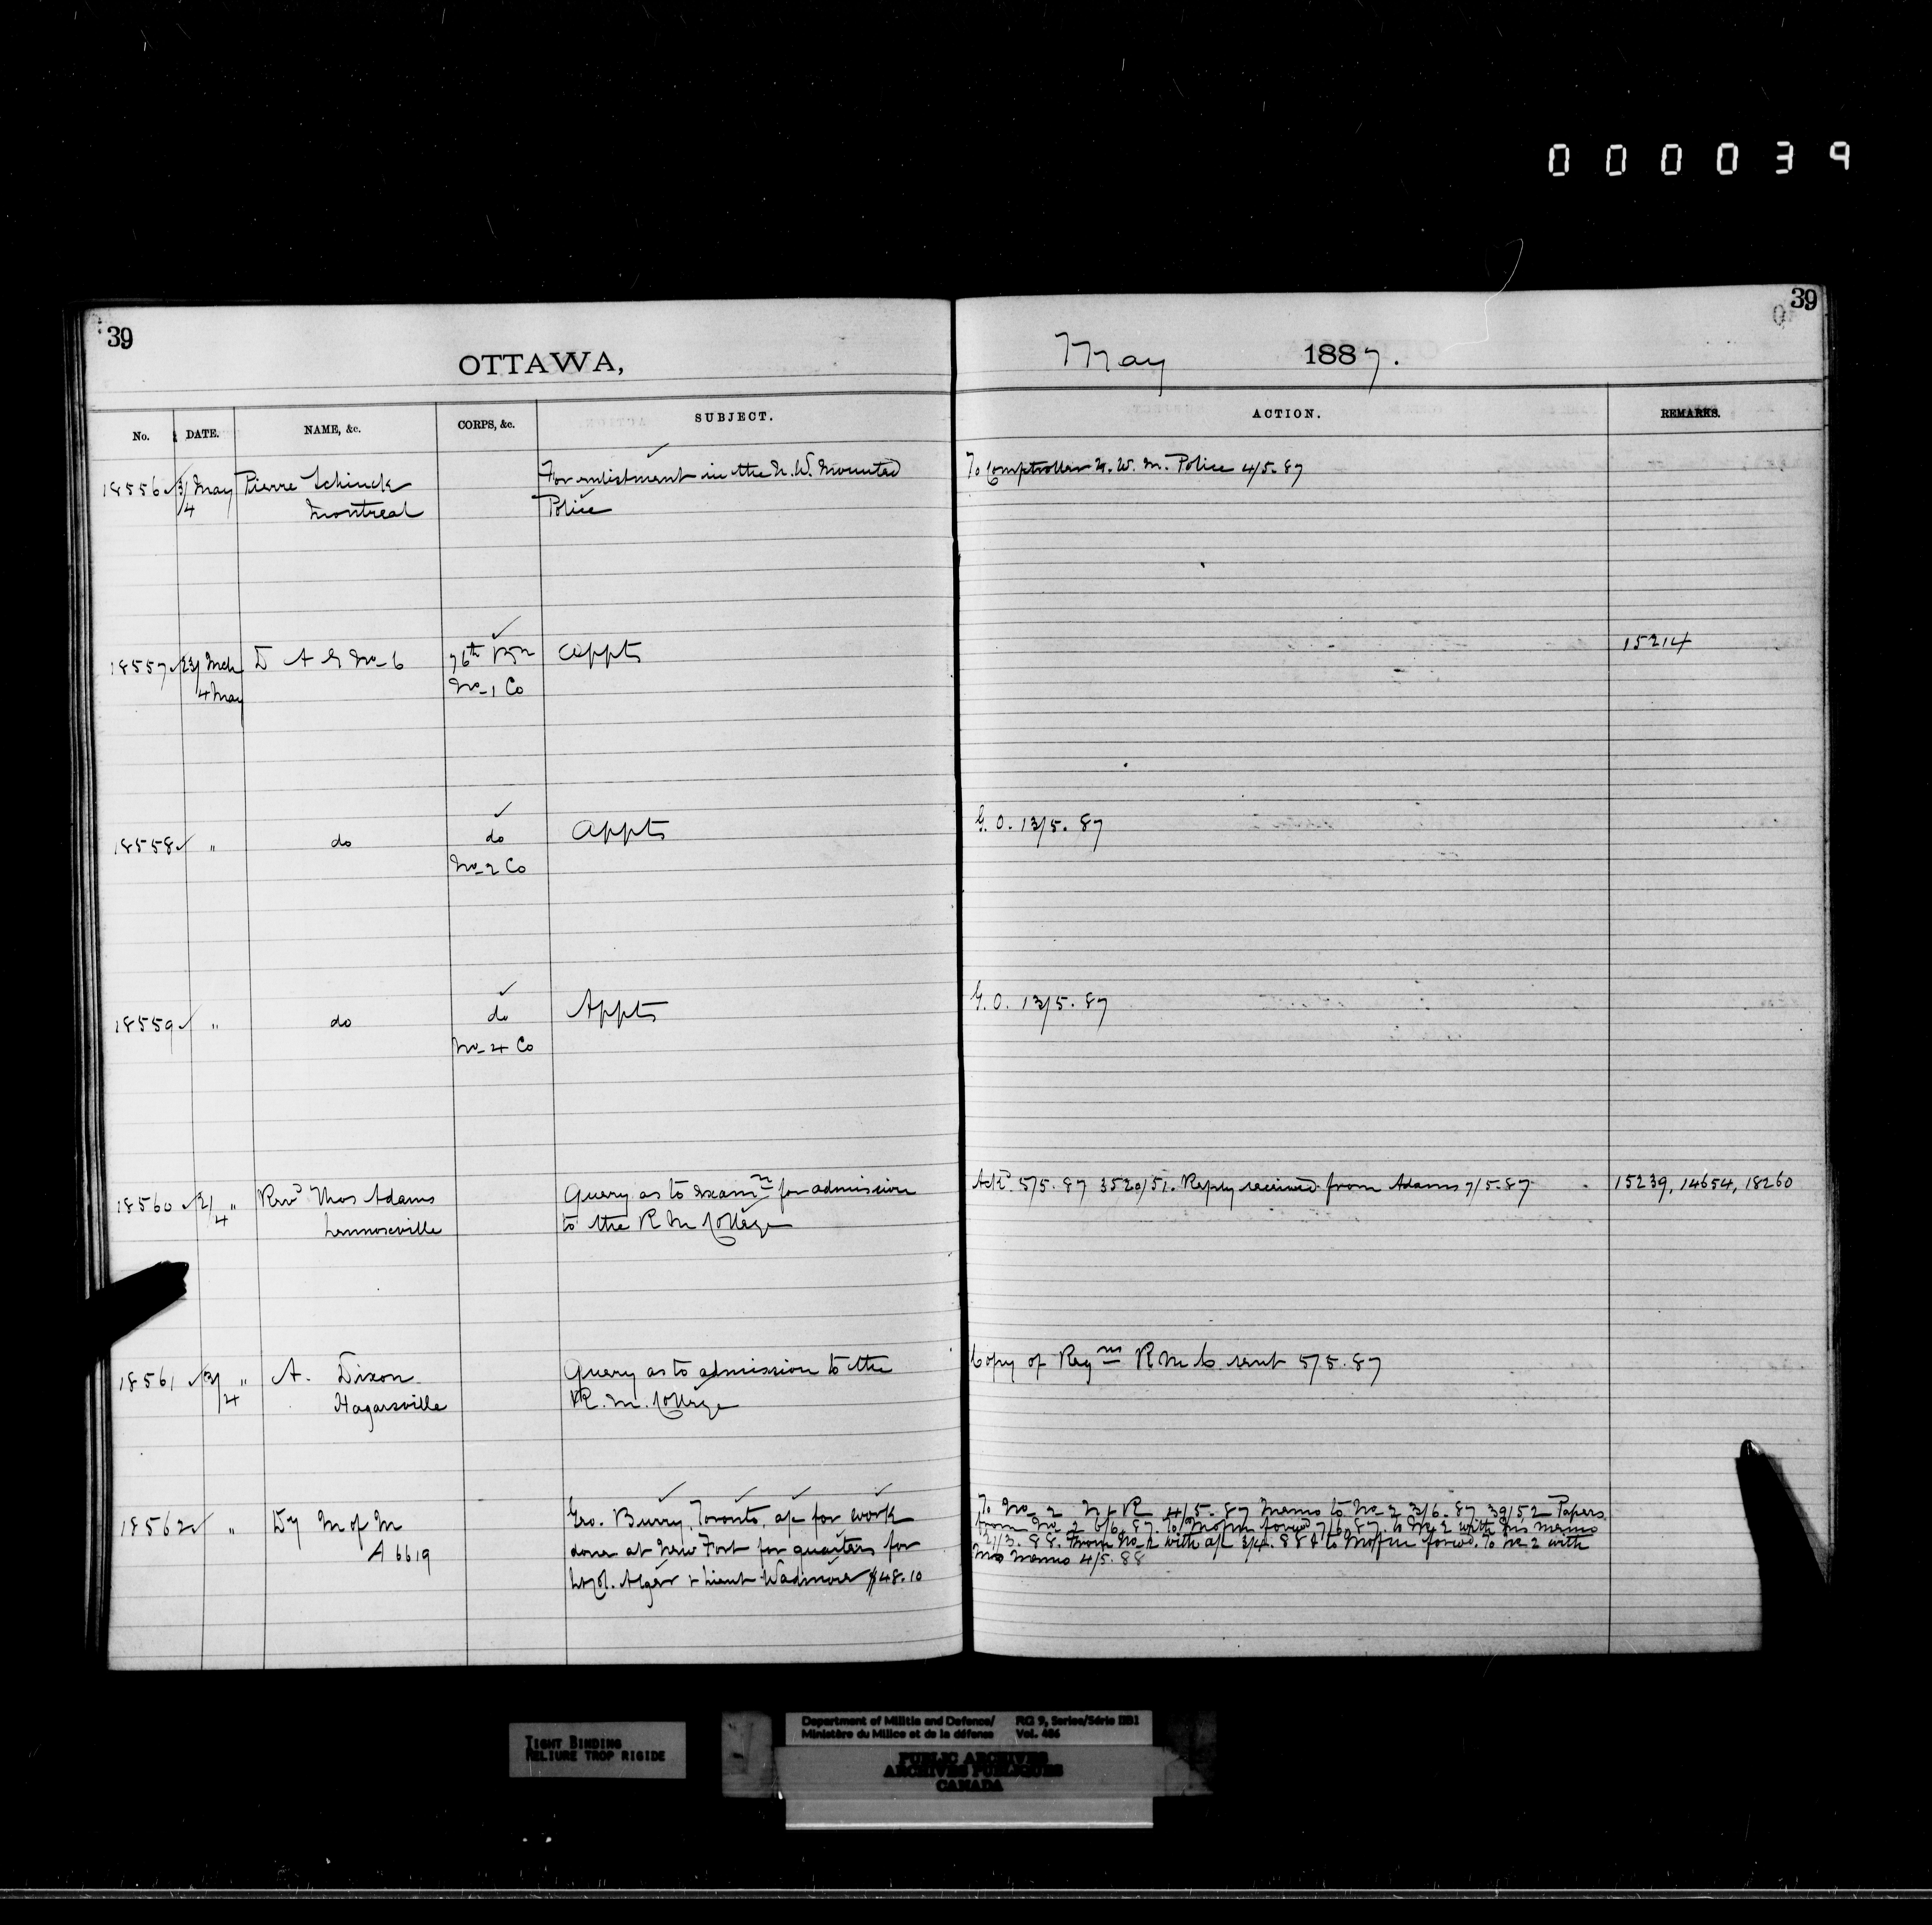 000039
39
39
OTTAWA,
May 1887.
No. DATE. NAME, &c. CORPS, &c. SUBJECT. ACTION. REMARKS.
18556 3/ May Pierre Schinck For enlistment in the N. W. Mounted To Comptroller N. W. M. Police 4/5. 87
4 Montreal Police
18557 23/ Mch D A G No 6 76th Btn Appts 15214
4 May No 1 Co
18558 " do do Appts G. O. 13/5. 87
No 2 Co
18559 " do do Appts G. O. 13/5. 87
No 4 Co
18560 2/ " Revd Thos Adams Query as to Examn for admission Ackd. 5/5. 87 3520/51. Reply received from Adams 7/5. 87 15239, 14654, 18260
4 Lennoxville to the R M College
18561 3/ " A. Dixon Query as to admission to the Copy of Regns R M C sent 5/5. 87
4 Hagarsville R. M. College
18562 " Dy M of M Geo. Burry, Toronto, a/c for work To No 2 4/5. 87 Memo to No 2 3/6. 87 39152 Papers
A 6619 done at New Fort for quarters for from No 2 6/6. 87. To forwd 7/6. 87. to No 2 with his memo
Lt Col. Alger & Lieut Wadmore $48.10 21/3. 88. From No 2 with a/c 3/4. 88 & to forwd. To No 2 with
his memo 4/5. 88
TIGHT BINDING
RELIURE TROP RIGIDE
Department of Militia and Defence/ RG 9, Series/Série IIB1
Ministère du Milice et de la défense Vol. 486
PUBLIC ARCHIVES
ARCHIVES PUBLIQUES
CANADA